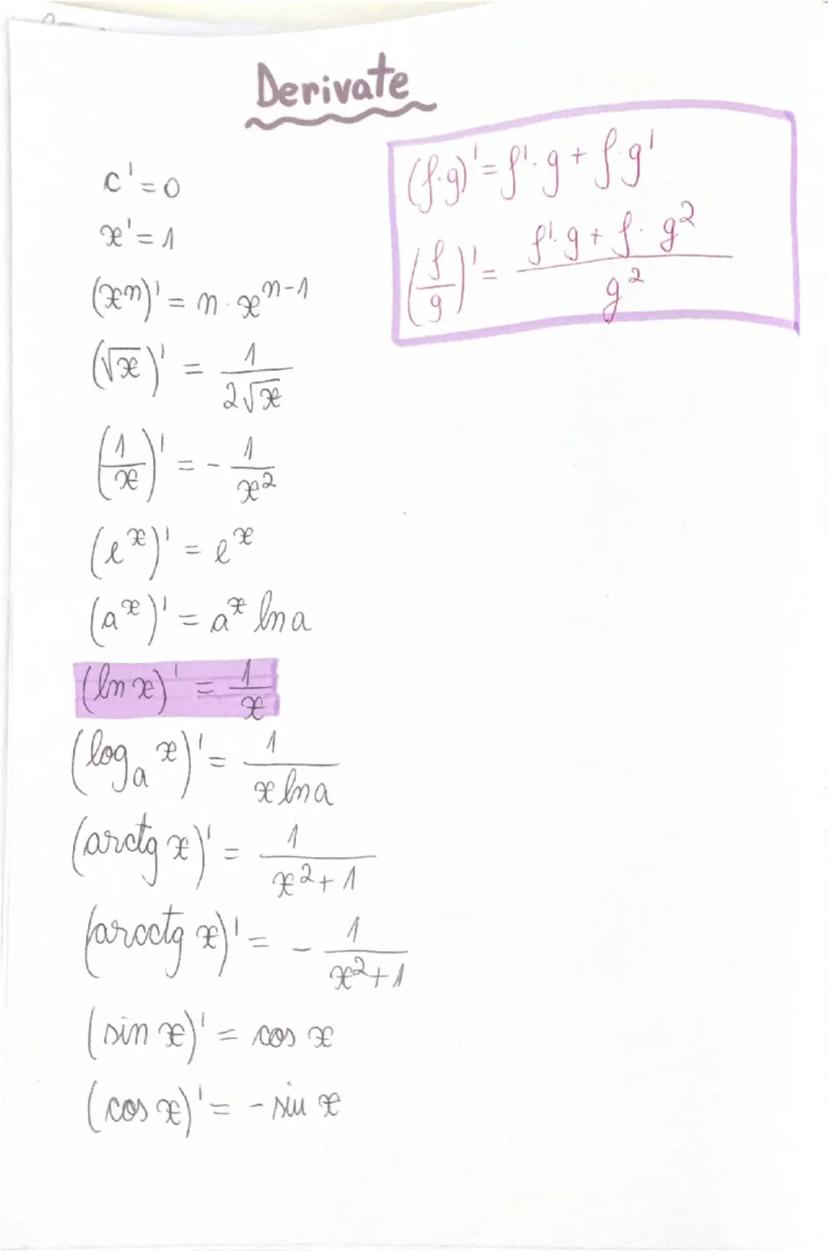 Derivate
c' = 0
x' = 1
(xⁿ)' = n · xⁿ⁻¹
(√x)' = 1/(2√x)
(1/x)' = - 1/x²
(eˣ)' = eˣ
(aˣ)' = aˣ ln a
(ln x)' = 1/x
(logₐ x)' = 1/(x ln a)
(arctg x)' = 1/(x² + 1)
(arcctg x)' = - 1/(x² + 1)
(sin x)' = cos x
(cos x)' = - sin x
(f·g)' = f'·g + f·g'
(f/g)' = (f'·g + f·g²)/g²